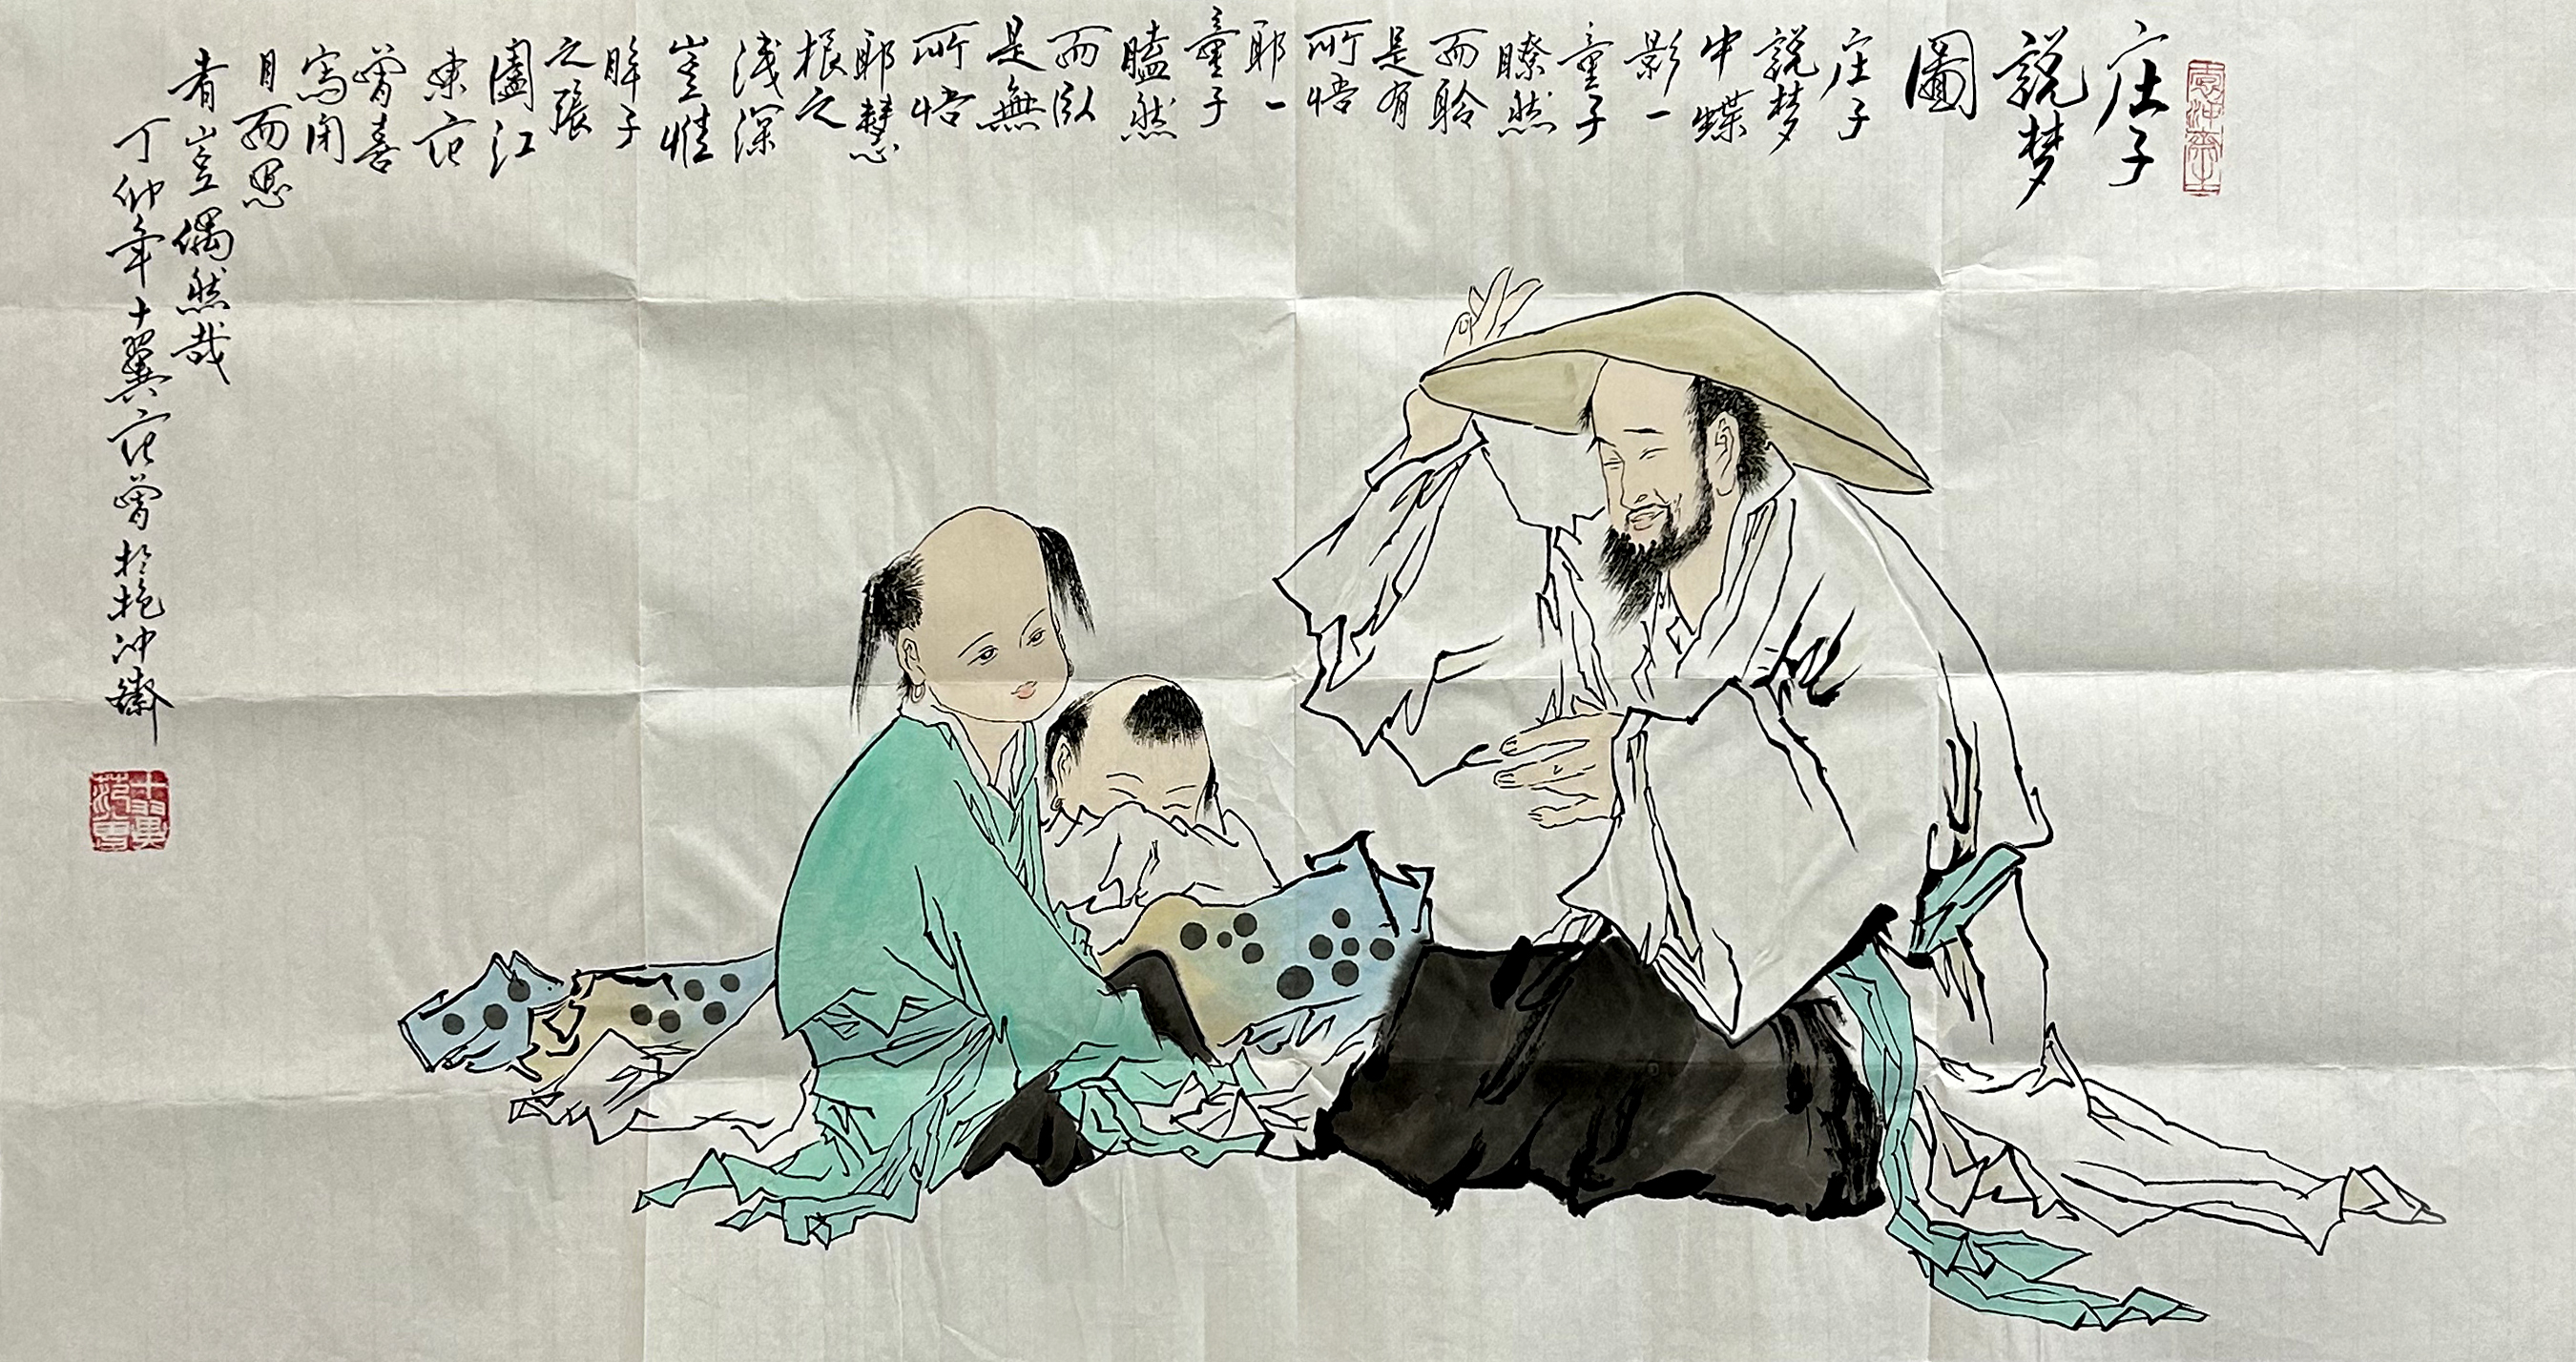 庄子
說梦
圖
庄子
說梦
中蝶
影一
童子
瞭然
而聆
是有
所悟
耶一
童子
瞌然
而臥
是無
所悟
耶慧
根之
浅深
豈惟
眸子
之張
闔江
東范
曾喜
寫闭
目而思
者豈偶然哉
丁卯年十翼范曾於抱冲齋
十翼
范曾